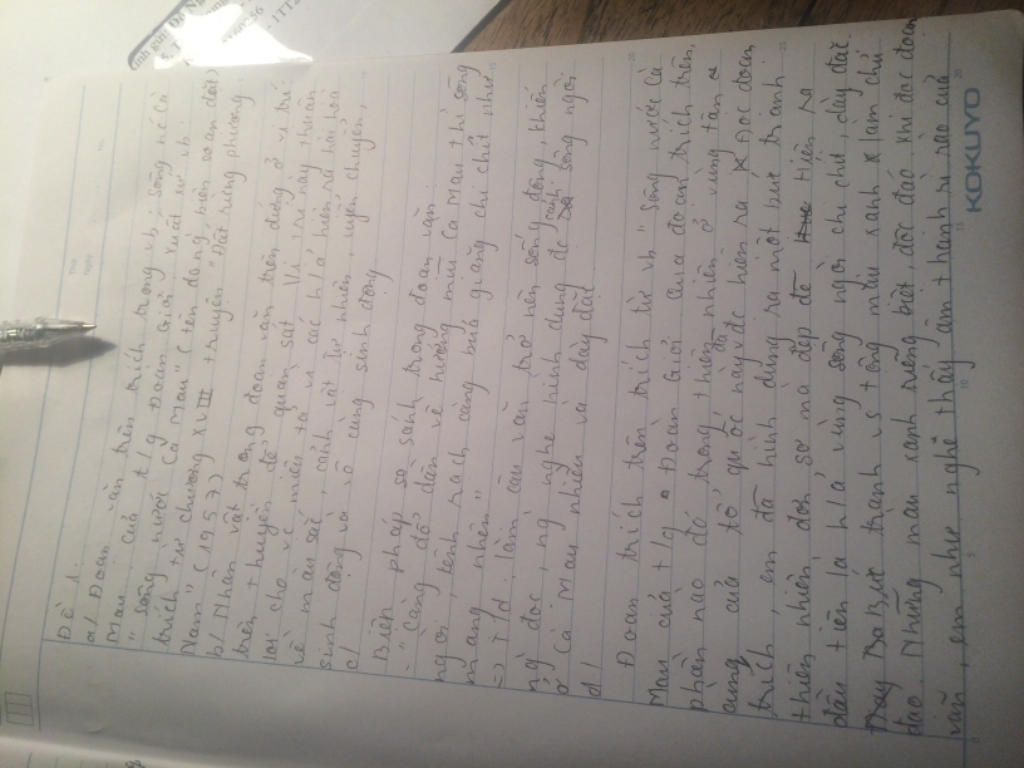 Đề 1.
a/ Đoạn văn trên trích trong vb, sông nước Cà
Mau, của t/g Đoàn Giỏi, xuất xứ vb
"sông nước Cà Mau" (tên do ng` biên soạn đặt)
trích từ chương XVIII truyện "Đất rừng phương
Nam" (1957)
b/ Nhân vật trong đoạn văn trên đứng ở vị trí
trên thuyền để quan sát. Vị trí này thuận
lợi cho vc miêu tả vì các h/ả hiện ra hài hoà
về màu sắc, cảnh vật tự nhiên, uyển chuyển,
sinh động và vô cùng sinh động
c/
Biện pháp so sánh trong đoạn văn
- "Càng đổ dần về hướng mũi Cà Mau thì sông
ngòi, kênh rạch càng bủa giăng chi chít như
mạng nhện"
=> T/d: làm câu văn trở nên sống động, khiến
ng` đọc, ng` nghe hình dung đc cảnh sông ngòi
ở Cà Mau nhiều và dày đặc
d/
Đoạn trích trên trích từ vb "sông nước Cà
Mau của t/g Đoàn Giỏi của đoạn trích trên,
phần nào đó trong thiên nhiên ở vùng tận
cùng của tổ quốc này đc hiện ra. Đọc đoạn
trích, em đã hình dung ra một bức tranh
thiên nhiên đơn sơ mà đẹp đẽ Hiện ra
đầu tiên là h/ả vùng sông ngòi chi chít, dày đặc.
Bức tranh vs tông màu xanh làm chủ
đạo Những màu xanh riêng biệt, độc đáo khi đọc đoạn
văn, em như nghe thấy âm thanh rì rào của
KOKUYO